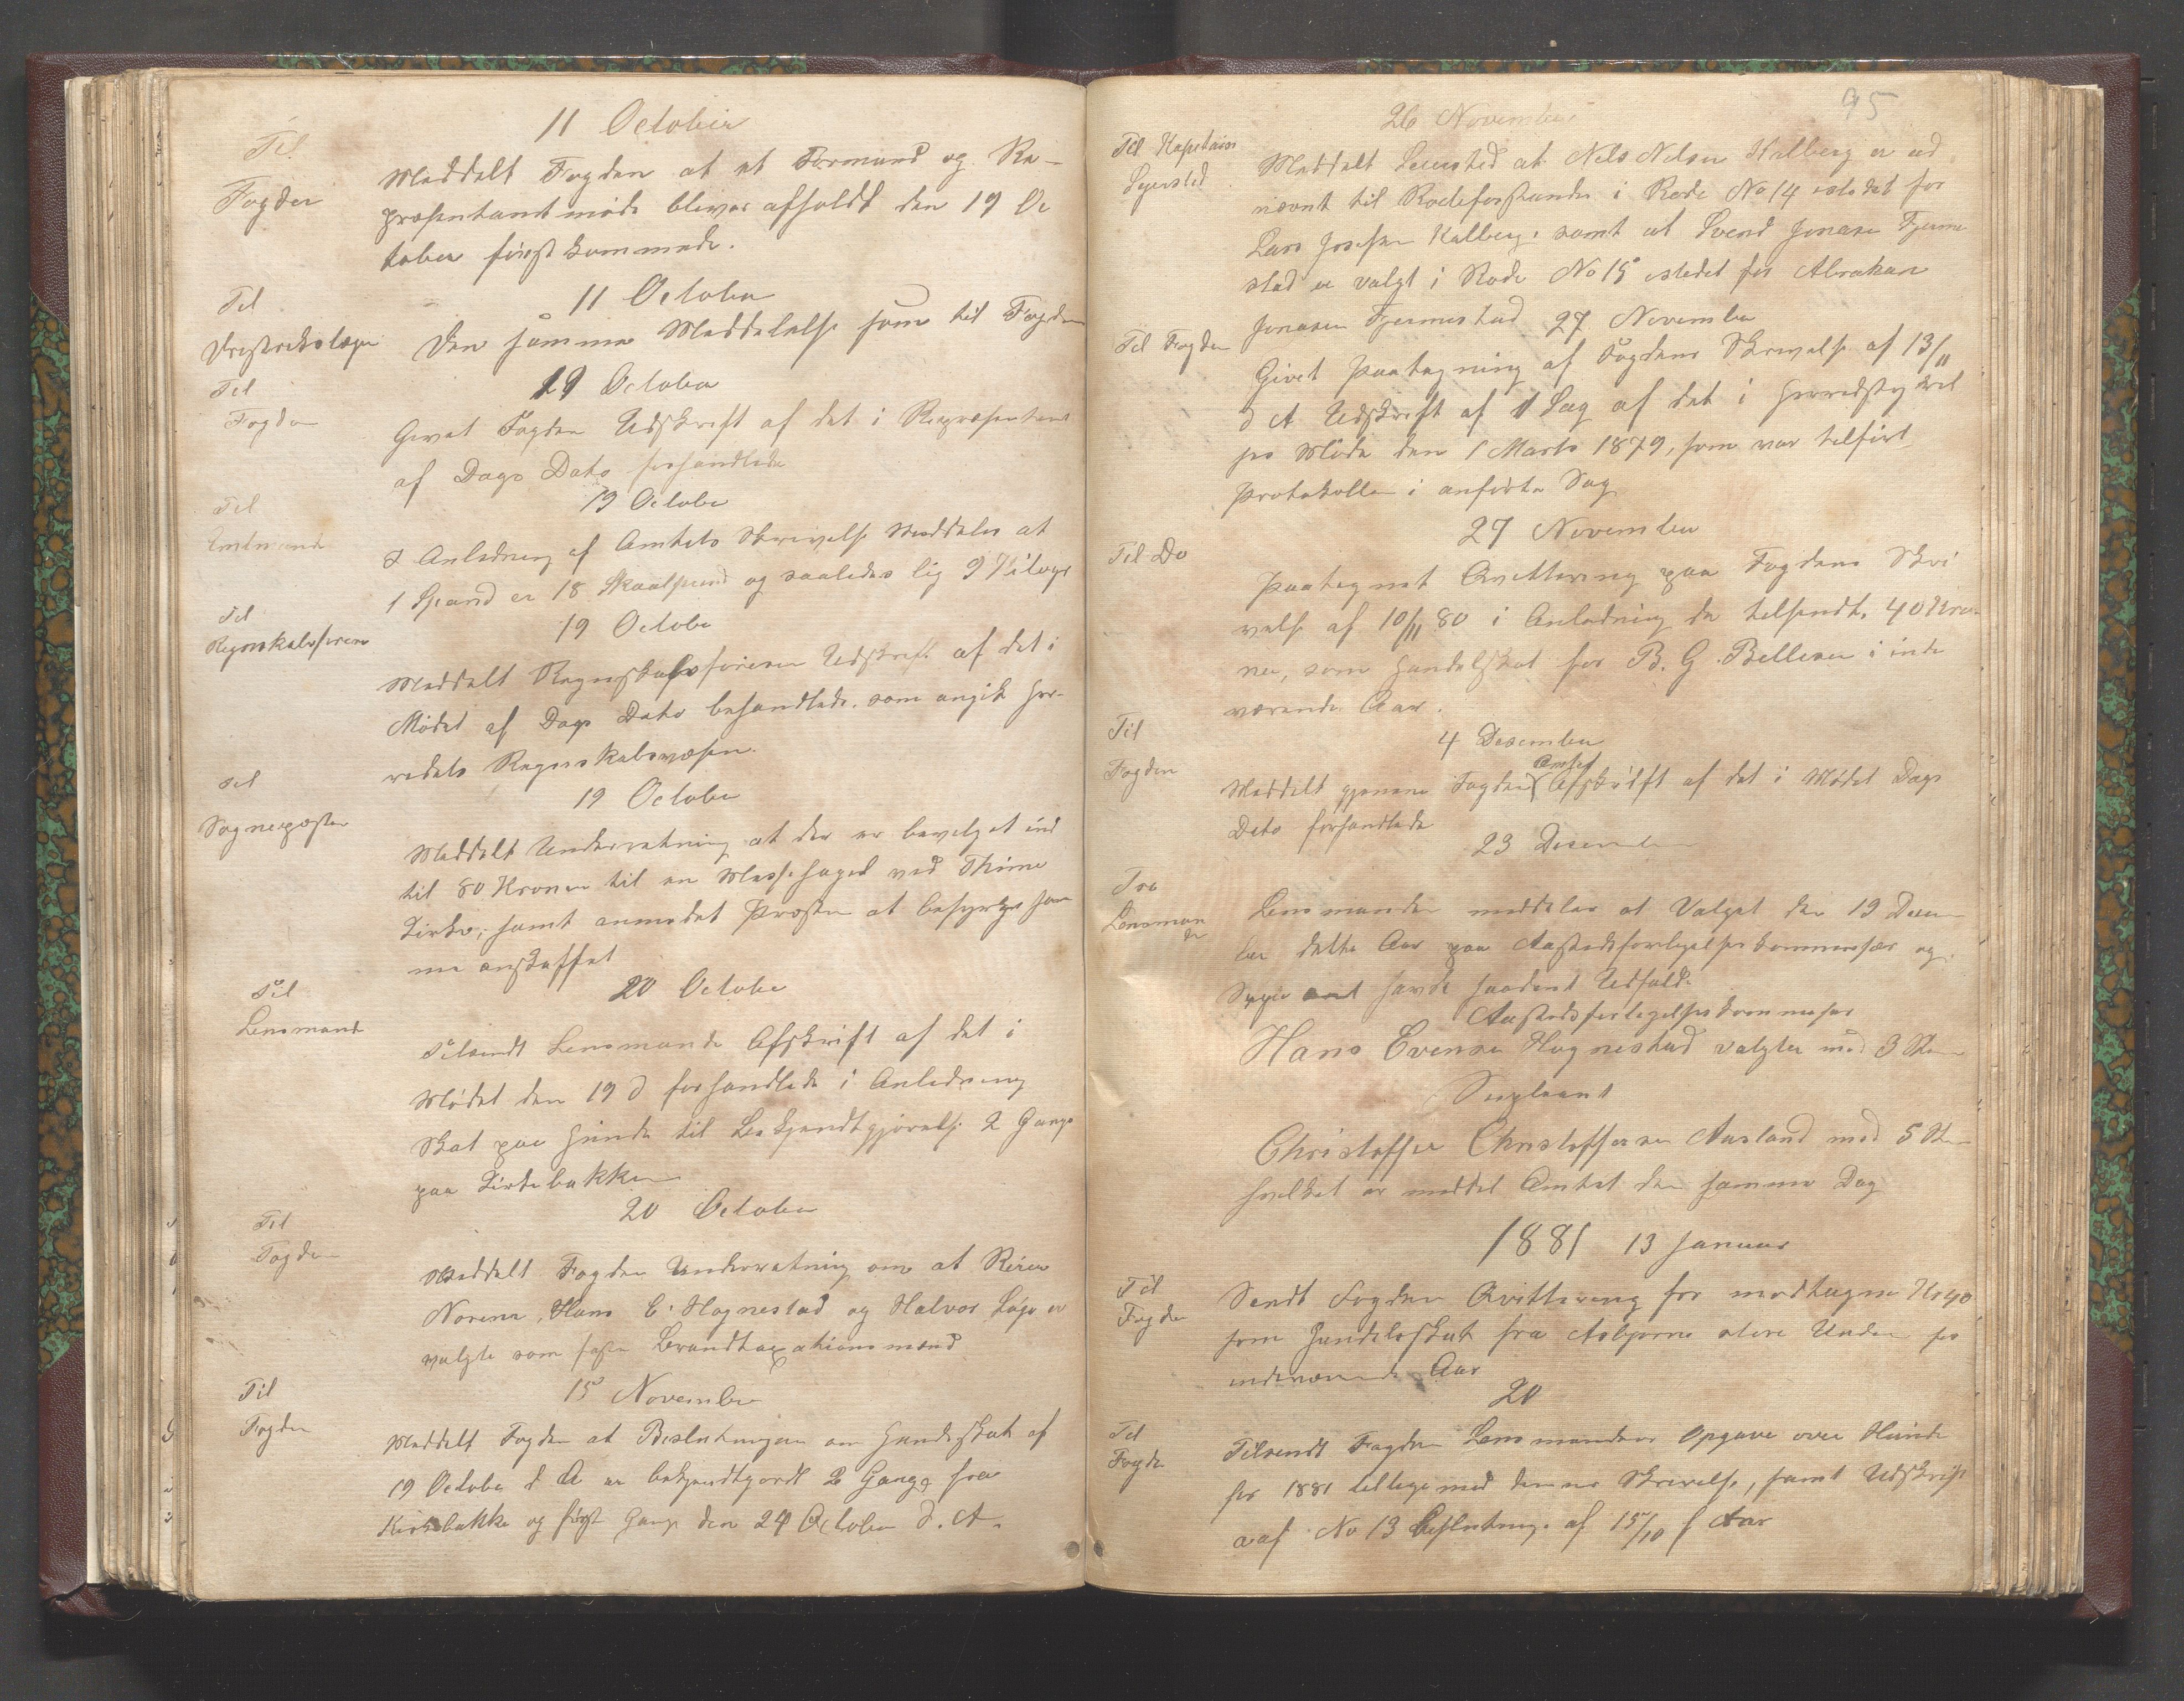 11 October
Til
Fogden
Meddelt Fogden at et Formand og Re-
præsentantmøde bliver afholdt den 19 Oc
tober førstkommende.
Til
Distriktslægen
11 October
Den samme Meddelelse som til Fogden
Til
Fogden
19 October
Givet Fogden Udskrift af det i Repræsentant
af Dags Dato forhandlede
Til
Amtmand
19 October
I Anledning af Amtets Skrivelse Meddeles at
1 Spand er 18 Skaalpund og saaledes lig 9 Kilogr
Til
Regnskabsføreren
19 October
Meddelt Regnskabsføreren Udskrift af det i
Mødet af Dags Dato behandlede, som angik Her-
redets Regnskabsvæsen.
Til
Sognepresten
19 October
Meddelt Underretning at der er bevilget ind
til 80 Kroner til en Messehagel ved Thime
Kirke, samt anmodet Præsten at besørge sam
me anskaffet
Til
Lensmand
20 October
Tilsendt Lensmanden Afskrift af det i
Mødet den 19 d forhandlede i Anledning
Skat paa Hunde til Bekjendtgjørelse 2 Gange
paa Kirkebakken
20 October
Til
Fogden
Meddelt Fogden Underretning om at
Norem, Hans E. Hognestad og Halvor Løge er
valgte som faste Brandtaxationsmænd
Til
Fogden
15 November
Meddelt Fogden at Beslutningen om Hundeskat af
19 October d A er bekjendtgjordt 2 Gange fra
Kirkebakke og først Gang den 24 October d. A.
95
26 November
Til Kaptain
Sejersted
Meddelt Sejersted at Nels Nelsen Kalberg er ud
nævnt til Rodeforstander i Rode No 14 istedet for
Lars Josefsen Kalberg, samt at Svend Jonasen Fjerme
stad er valgt i Rode No 15 istedet for Abraham
Jonasen Fjermestad
27 November
Til Fogden
Givet Paategning af Fogdens Skrivelse af 13/11
d A Udskrift af 1 Sag af det i Herredsstyrel
ses Møde den 1 Marts 1879, som var tilført
Protokollen i anførte Sag
27 November
Til Do
Paategnet Qvittering paa Fogdens Skri
velse af 10/11 80 i Anledning de tilsendte 40 Kro
ner, som Handelskat for B. G. Bellesen i inde
værende Aar.
4 Desember
Til
Fogden
Meddelt gjenem Fogden Amtet Afskrift af det i Mødet Dags
Dato forhandlede
23 Desember
Fra
Lensman
den
Lensmanden meddeler at Valget den 19 Decem
ber dette Aar paa Aastedsforligelseskommissær og
Suppleant havde saadant Udfald.
Aastedsforligelseskommissær
Hans Evensen Hognestad valgter med 3 Stem
Supleant
Christoffer Christoffersen Aasland med 5 Stem
hvilket er meddelt Amtet den samme Dag
1881 13 Januar
Til
Fogden
Sendt Fogden Qvittering for modtagne Kr 40
som Handelsskat fra Asbjørn Unden for
indeværende Aar
20
Til
Fogden
Tilsendt Fogden Lensmandens Opgave over Hunde
for 1881 tillige med dennes Skrivelse, samt Udskrift
af No 13 Beslutning af 15/10 f Aar